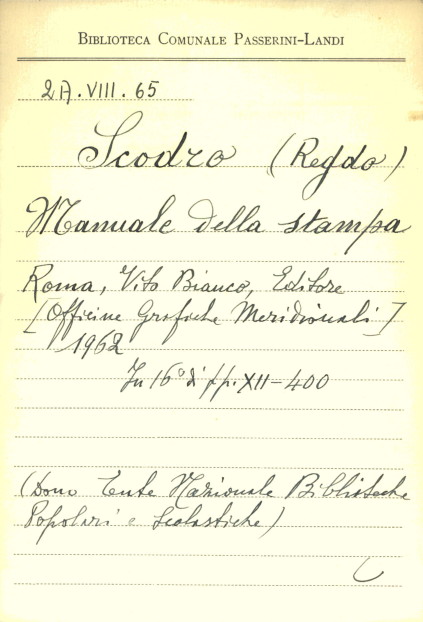 BIBLIOTECA COMUNALE PASSERINI-LANDI
2A.VIII.65
Scodro (Regdo)
Manuale della stampa
Roma, Vito Bianco, Editore
[Officine Grafiche Meridionali]
1962
In 16° di pp. XII-400
(Dono Ente Nazionale Biblioteche
Popolari e Scolastiche)